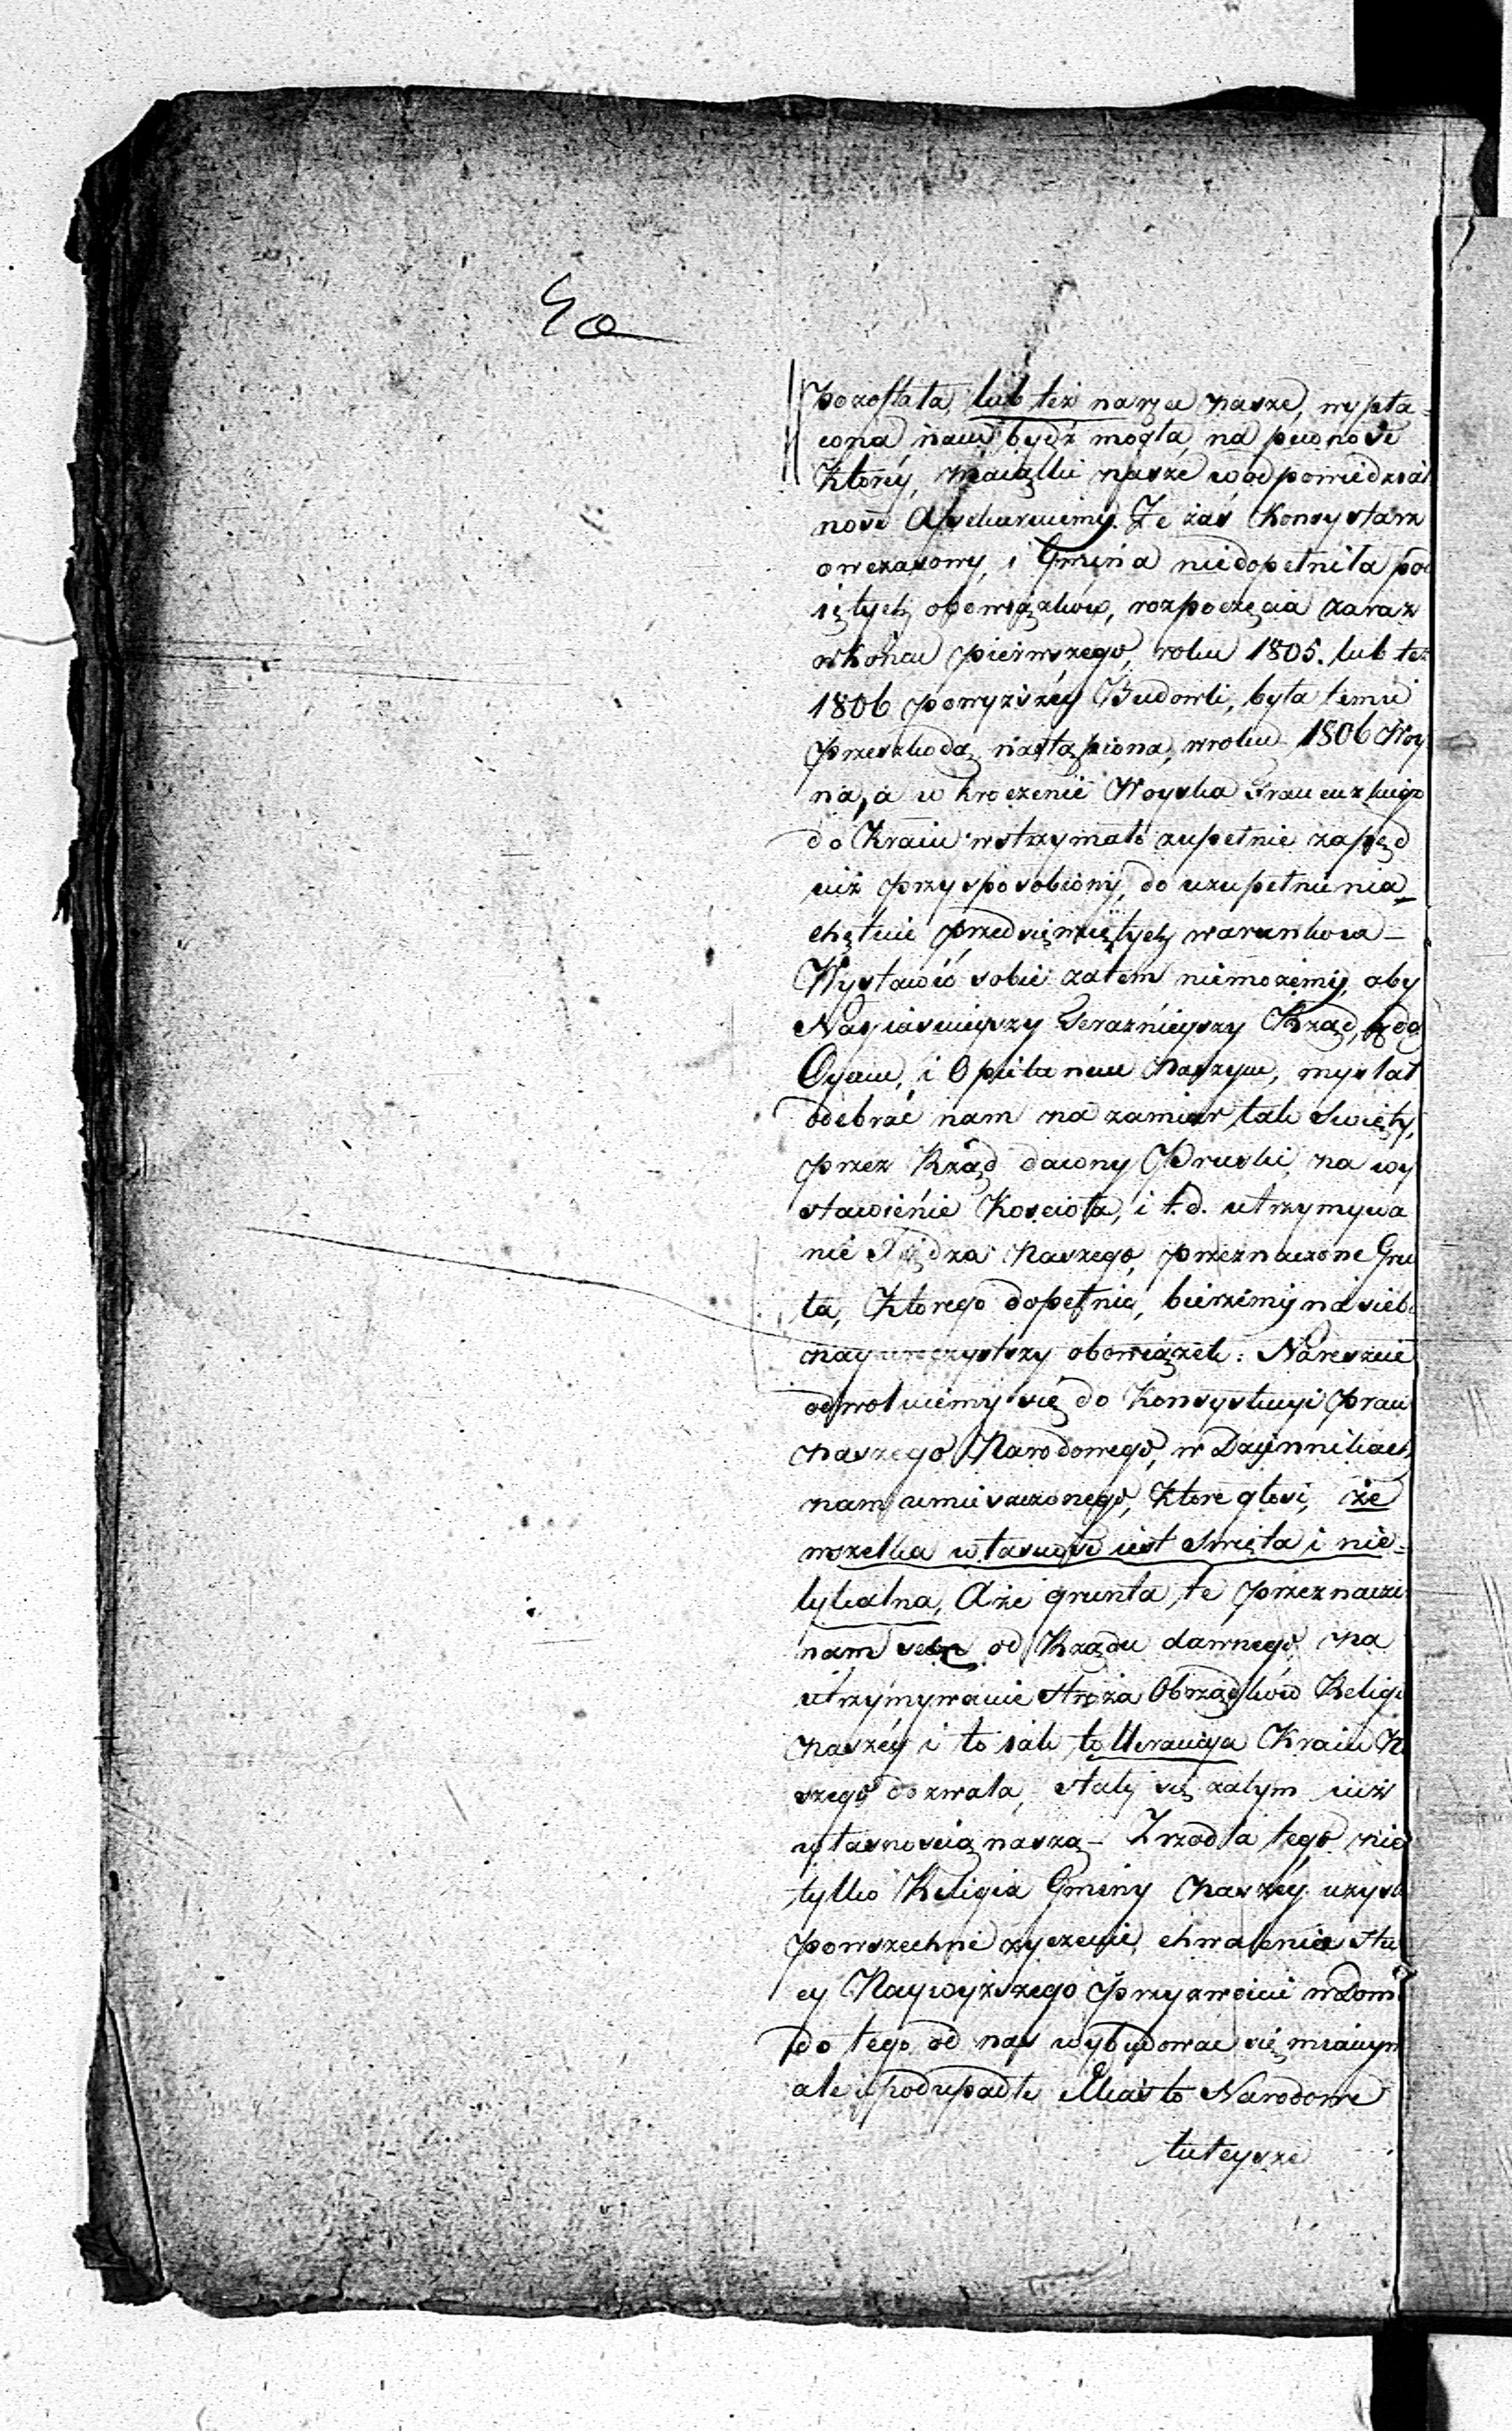 pozostała, lub też na ręce nasze, wypła-
cona nam bydź mogła, na pewność
Którÿ, maiątki nasze w odpowiedzial
ność Assekuruiemy. Że zaś Konsystarz
owczasowy, i Gmina niedopełniła pod
iętych obowiązków, rozpoczęcia zaraz
w Końcu pierwszego, roku 1805. lub też
1806 powyższéy Budowli, była temu
przeszkodą nastąpiona, w roku 1806 Woy
na, a wkroczenie Woyska Francuzkiego
do Kraiu wstrzymało zupełnie zapęd
iuż przysposobiony, do uzupełnienia
chętnie przedsięwziętych warunkow –
Wystawić sobie zatem niemożemy, aby
Nayiasnieyszy Terażnieyszy Rząd, będąc
Oycem, i Opiekunem Naszym, myslał
odebrać nam na zamiar tak Swięty,
przez Rząd dawny Pruski, na wy
stawienie Kościoła, i t.d. utrzymywa
nie Xiędza Naszego, przeznaczone Grun
ta, Ktorego dopełnić, bierzemy na siebie
nayuroczystszy obowiązek: Nareszcie
odwołuiemy się do Konsystucyi praw
naszego Narodowego, w Dziennikach
nam umieszczonego, Które głosi, że
wszelka własność iest Swięta i nie-
tykalna, A że grunta, te przeznaczone
nam od Rządu dawnego na
utrzymywanie stróża Obrządków Religii
naszéy i to iak tollerancya Kraiu Na
szego dozwala, stały się zatym iuż
własnością naszą – Zrzodła tego nie
tylko Religia Gminy naszéy uzyska
powszechne życzenie, chwalenia
Naywyższego przyzwoicie w Domu
do tego od nas wybudować się maiącym
ale i podupadłe Miasto Narodowe
tuteysze